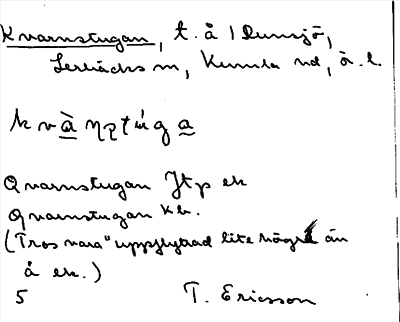 Kvarnstugan, t. å 1 Runsjö,
Lerbäcks sn, Kumla hd, Ö. l.
Qvarnstugan Jtp ek
Qvarnstugan kb.
(Tros vara "uppflyttad lite högre än
å ek.)
5 T. Ericsson